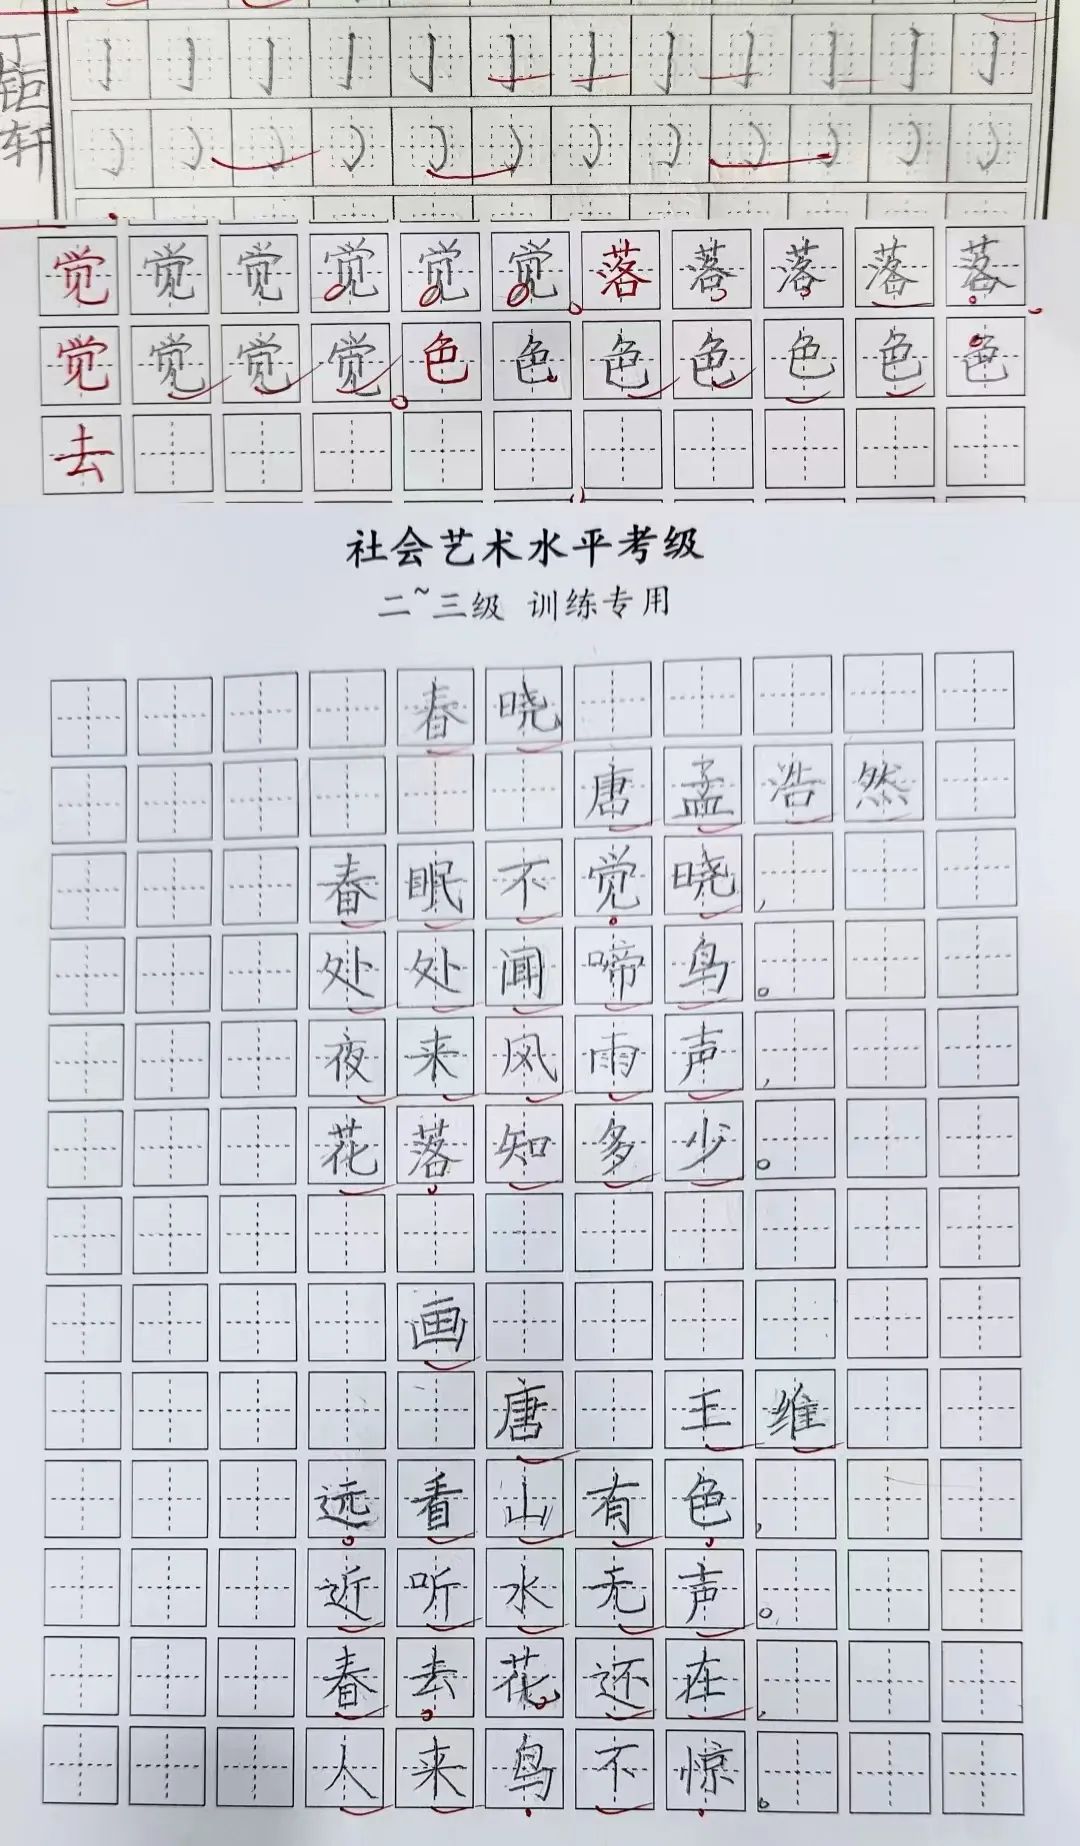 丁钜轩
觉觉觉觉觉觉落落落落落
觉觉觉觉色色色色色色色
去
社会艺术水平考级
二~三级 训练专用
春晓
唐孟浩然
春眠不觉晓,
处处闻啼鸟。
夜来风雨声,
花落知多少。
画
唐 王维
远看山有色,
近听水无声。
春去花还在,
人来鸟不惊。